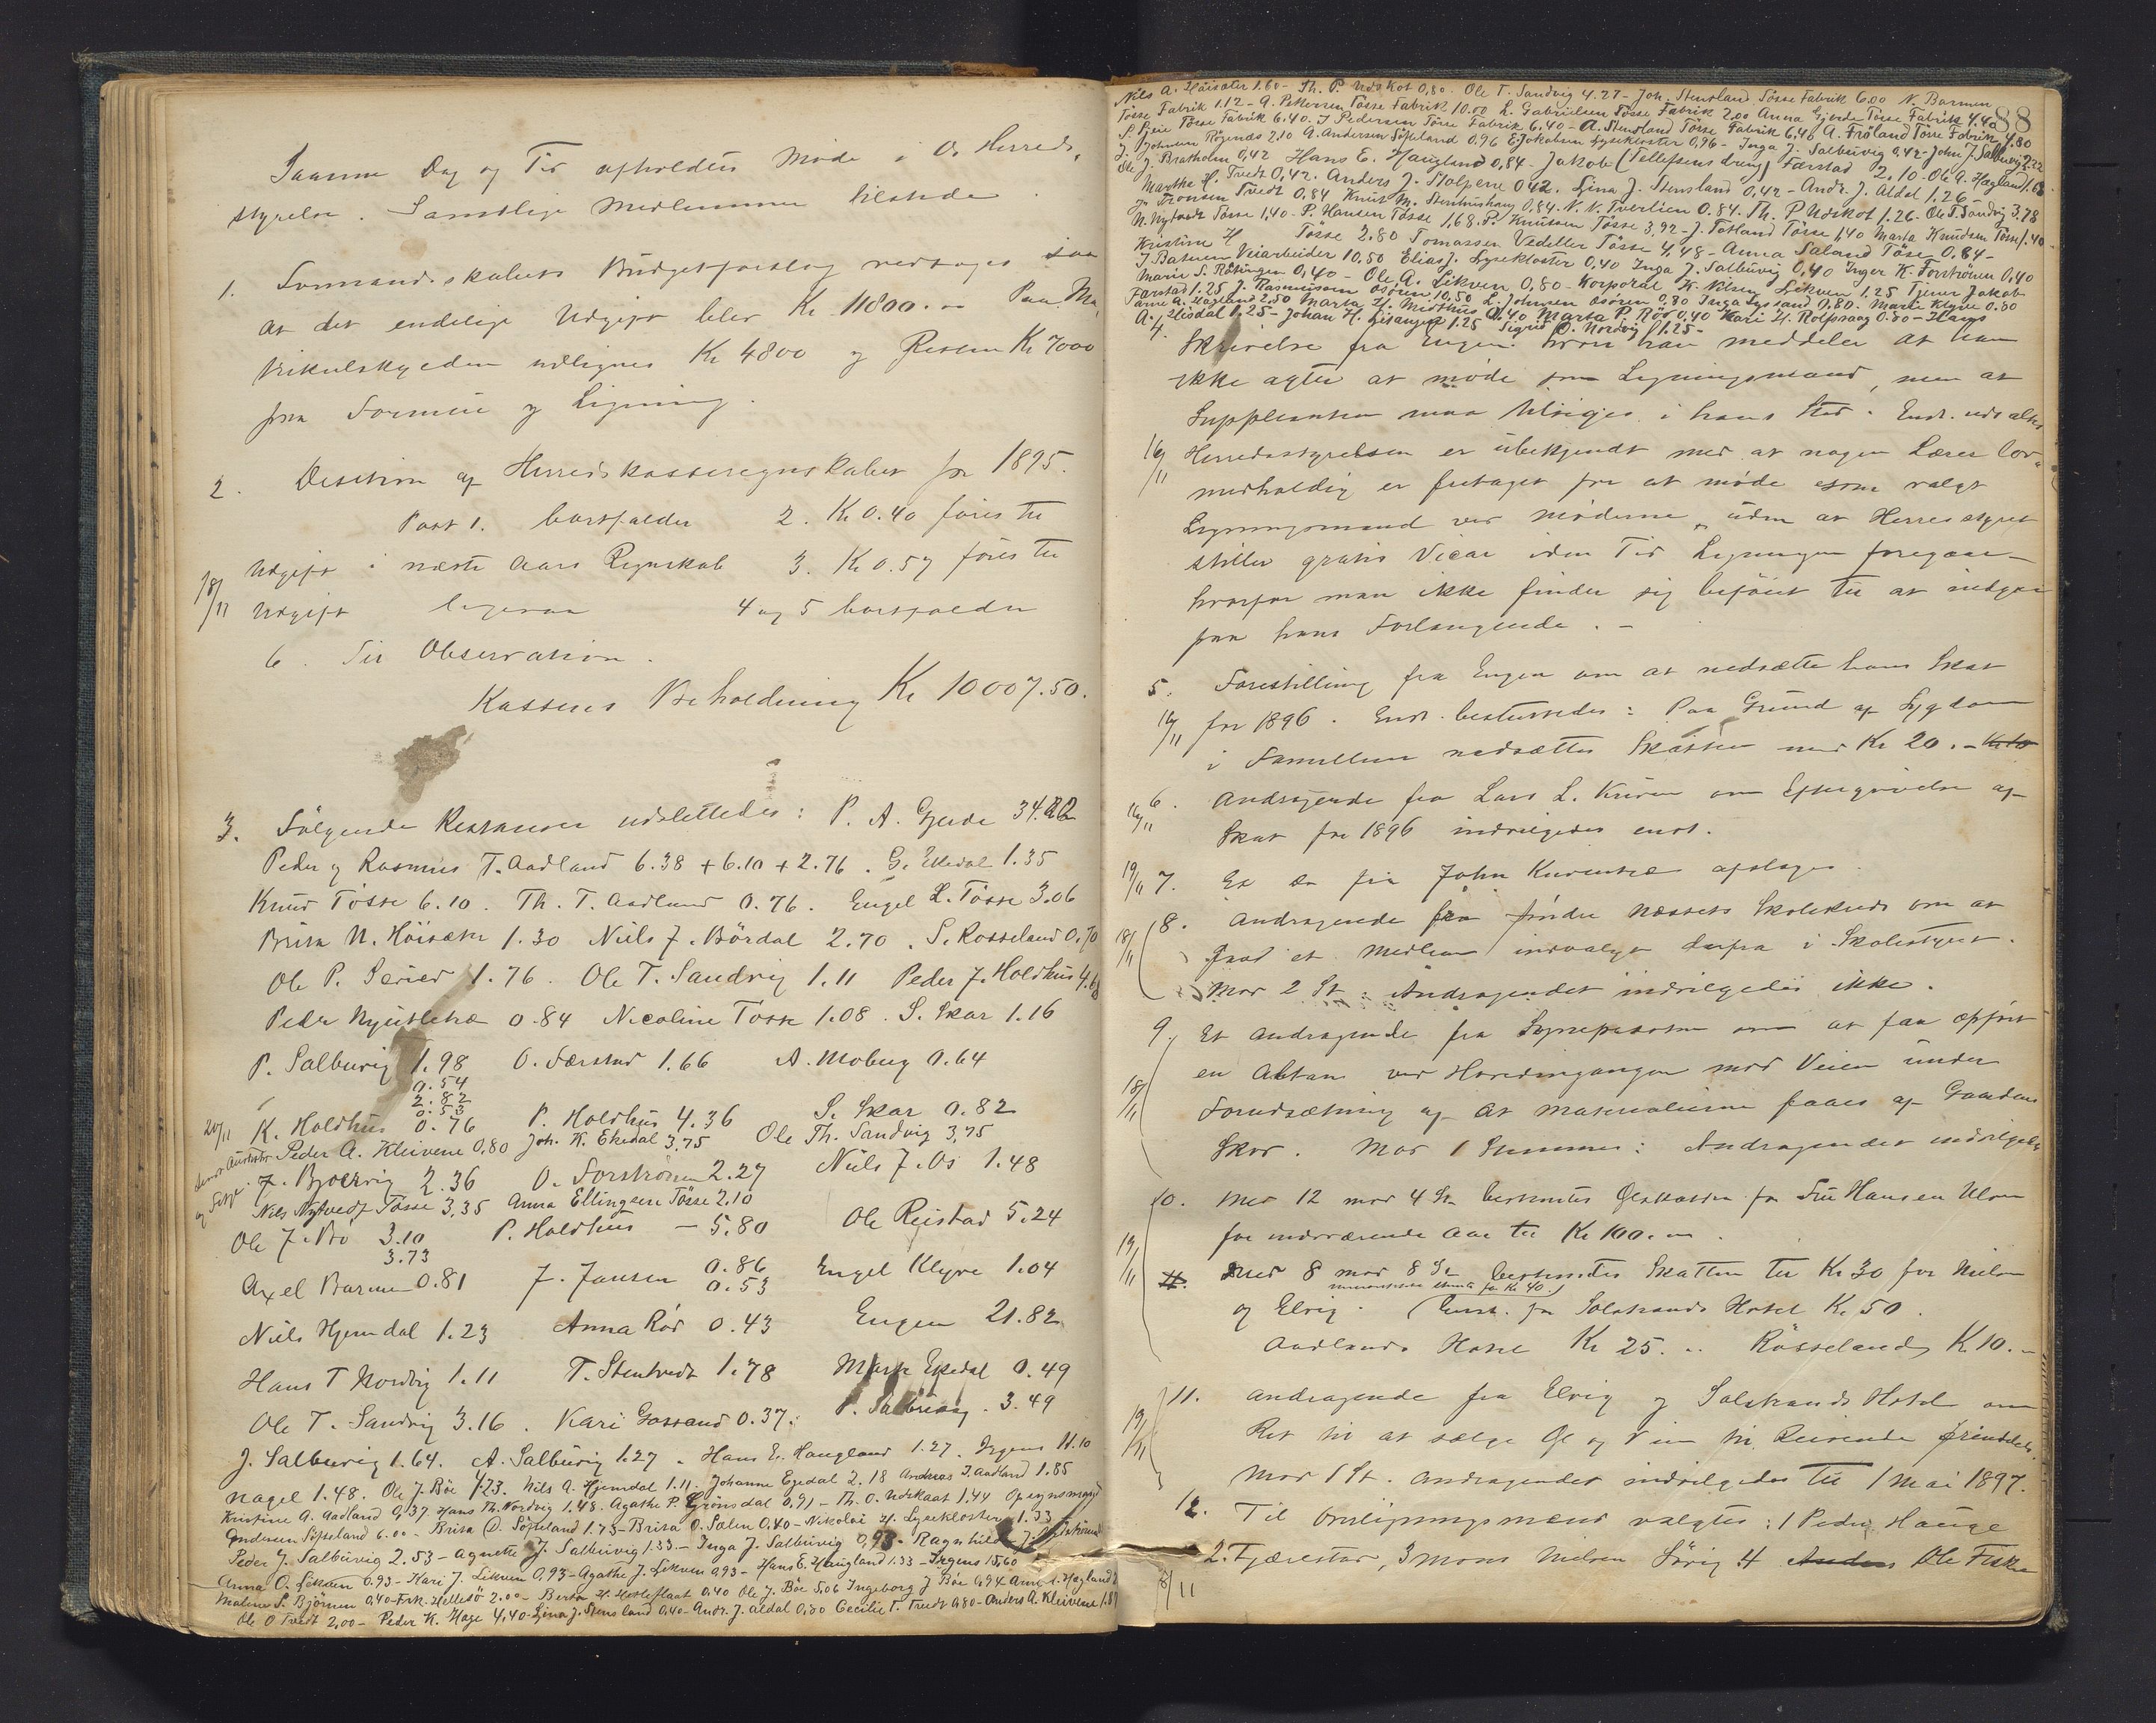 Samme Dag og Tid afholdtes Møde i Os Herreds-
styrelse. Samtlige Medlemmer tilstede.
1. Formandskabets Budgetforslag vedtoges saa
at det endelige Udgift blev Kr 11800.— Paa Ma-
trikulskylden udlignes Kr 4800 og Resten Kr 7000
paa Formue og Ligning.
2. Desition af Herredskasseregnskabet for 1895.
Post 1. bortfalder 2. Kr 0.40 føres til
Udgift i næste Aars Regnskab 3. Kr 0.57 føres til
18/11 Udgift ligesaa 4 og 5 bortfalder
6. Til Observation.
Kassens Beholdning Kr 10007.50.
3. Følgende Restancer udslettedes: P. A. Gjerde 34.22
Peder og Rasmus T. Aadland 6.38 + 6.10 + 2.76. G. Ekedal 1.35
Knud Tøsse 6.10. Th. T. Aadland 0.76. Engel L. Tøsse 3.06
Brita N. Höisæter 1.30 Niels J. Bördal 2.70. S. Rosseland 0.70
Ole P. 1.76. Ole T. Sandvig 1.11 Peder J. Holdhus
Peder 0.84 Nicoline Tøsse 1.08. S. Skar 1.16
P. Salbuvig 1.98 O. Færstad 1.66 A. Moberg 0.64
0.54
2.82
0.53
20/11 K. Holdhus 0.76 P. Holdhus 4.36 S. Skar 0.82
Peder A. Kleivene 0.80 Joh. K. Ekedal 3,75 Ole Th. Sandvig 3,75
J. Bjoervig 2.36 O. Forströnen 2.27 Niels J. Os 1.48
Nils Nytvedt Tösse 3,35 Anna Ellingsen Tösse 2.10
Ole J. Bö 3.10 P. Holdhus — 5.80 Ole Reistad 5.24
3.73
Axel Barmen 0.81 J. Jansen 0.86 Engel Klyve 1.04
0.53
Niels Hjemdal 1.23 Anna Rød 0.43 Engen 21.82
Hans T Nordvig 1.11 T. Stentvedt 1.78 Marta Ekedal 0.49
Ole T. Sandvig 3.16. Kari 0.37. P. Salbuvig. 3.49
J. Salbuvig 1.64. A. Salbuvig 1.27. Hans E. Haugland 1.27. Irgens 11.10
Nagel 1.48. Ole J. Böe 4.23. Nils A. Hjemdal 1.11. Johanne Egedal 2.18 Andreas J. Aadland 1.85
Kristine A. Aadland 0,37 Hans Th. Nordvig 1.48. Agathe P. Grönsdal 0.91 - Th. O. Udskaat 1.44 Opsynsmand
Andersen Söfteland 6.00 - Brita O. Söfteland 1.73 - Brita O. Sælen 0.40 - Nikolai H. Lysekloster 1.33 -
Peder J. Salbuvig 2.53 - Agnethe J. Salbuvig 1.33. - Inga J. Salbuvig 0,93 - Ragnhild J.
Anna O. Lekven 0.93 - Kari J. Lekven 0,93 - Agathe J. Lekven 0,93 - Hans E. Haugland 1.33 - Irgens 15,60
Malene S. Björnen 0,40 - Frk. Hellesö 2.00 - Berta H. Hetleflaat 0.40 Ole J. Böe 5.06 Ingeborg J Böe 0,94 Arne A. Hagland
Ole O Tvedt 2,00 - Peder K. Hage 4,40 - Lina J. Stensland 0,40 - Andr. J. Aldal 0.80 Cecilie T. Tvedt 0,80 - Anders A. Kleivene 1.87
88
Nils A. Höisæter 1.60 - Th. P. Udskot 0,80. Ole T. Sandvig 4.27 - Joh. Stensland Tösse Fabrik 6.00 N. Barmen
Tösse Fabrik 1.12 - A. Pettersen Tösse Fabrik 10.00 L. Gabrielsen Tösse Fabrik 2,00 Anna Gjerde Tösse Fabrik 4.40
S. Tösse Fabrik 6.40. J Pedersen Tösse Fabrik 6.40 - A. Stensland Tösse Fabrik 6,40 A. Fröland Tösse Fabrik 4.80
J. Johnsen Röjenæs 2,10 A. Andersen Söfteland 0.96 E. Jakobsen Lysekloster 0,96 - Inga J. Salbuvig 0,42 - John J. Salbuvig 2.22
Ole J. Bratholm 0,42 Hans E. Haugland 0,84 - Jakob (Tellefsens dreng) Færstad 2.10 - Ole A. Hagland 1.68
Martha H. Tvedt 0,42. Anders J. Stolpene 042. Lina J. Stensland 0,42 - Andr. J. Aldal 1.26 -
Tvedt 0,84 Knut M. Stenhushaug 0,84. N. N. Tverlien 0.84. Th. P Udskot 1.26. Ole T. Sandvig 3.78
N. Nytvedt Tösse 1,40 - P. Hansen Tösse 1,68. P. Knutsen Tösse 3,92 - J. Totland Tösse 1,40 Marta Knudsen Tösse 1.40
Kristine H Tösse 2.80 Tomassen Vedeller Tösse 4,48 - Anna Saland Töse 0.84 -
J Batsven Veiarbeider 10,50 Elias J. Lysekloster 0,40 Inga J. Salbuvig 0,40 Inger K. Forströnen 0,40
Marie S. Röttingen 0,40 - Ole A. Lekven 0,80 - Korporal K. Nilsen Lekven 1.25 Tjener Jakob
Færstad 1.25 J. Rasmussen Osören 10,50 L. Johnsen Osören 0,80 Inga Lyssand 0,80. Marie Klyve 0.80
Arne A. Hagland 2,50 Marta H. Midthus 0,40 Marta P. Röd 0,40 Kari H. Rolfsvaag 0.80 - Hans
A. Hisdal 1.25 - Johan H. Gisanger 1.25 Sigrid O. Nordvig 1.25 -
4. Skrivelse fra Engen hvori han meddeler at han
ikke agter at møde som Ligningsmand, men at
Supplianten maa tilsiges i hans Sted. Enst. udtaltes
16/11 Herredsstyrelsen er ubekjendt med at nogen Lærer lov-
medholdig er fritaget for at møde som valgt
Ligningsmand ved Møderne, uden at Herredsstyret
stiller gratis Vicar iden Tid Ligningen foregaar -
hvorfor man ikke finder sig beføiet til at indgaa
paa hans Forlangende. -
5. Forestilling fra Engen om at nedsætte hans Skat
16/11 for 1896. Enst. besluttedes: Paa Grund af Sygdom
i Familien nedsættes Skatten med Kr 20.-
6. Andragende fra Lars L. Kuven om Eftergivelse af
16/11 Skat for 1896 indvilgedes enst.
19/11 7. Et do fra John Kuventræ afsloges.
8. Andragende fra søndre Næssets Skolekreds om at
18/11 faa et Medlem indvalgt derfra i Skolestyret.
Mod 2 St: Andragendet indvilgedes ikke.
9. Et Andragende fra om at faa opført
en Altan ved Hovedingangen mod Veien under
18/11 Forudsætning af at Materialierne faaes af Gaardens
Skov. Mod 1 Stemme: Andragendet indvilgedes
10. Med 12 mod 4 St. bestemtes Ølskatten for Fru Hansen Ulven
19/11 for indeværende Aar til Kr 100.-
11. Med 8 mod 8 St. bestemtes Skatten til Kr 30 for Nielsen
for Kr 40.
og Elvig. (Enst. for Solstrands Hotel Kr 50.
Aadlands Hotel Kr 25.- Røsselands Kr 10.-
11. Andragende fra Elvig og Solstrands Hotel om
19/11 Ret til at sælge Øl og Vin til Reisende
Mod 1 St. Andragendet indvilgedes til 1 Mai 1897.
12. Til Omligningsmænd valgtes: 1 Peder Hauge
2. Tjærestad, 3 Mons Nielsen Sørvig 4 Anders Ole
8/11